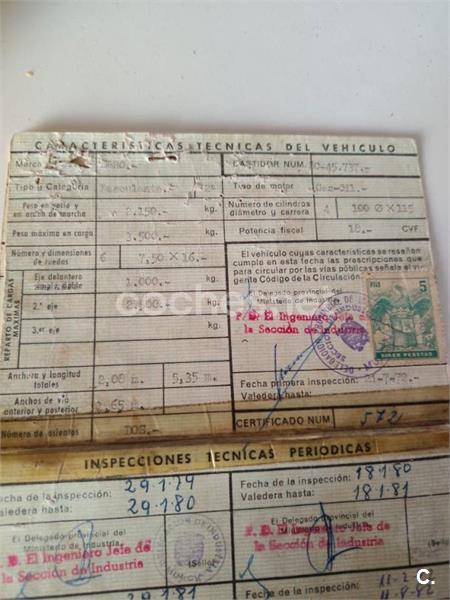 CARACTERISTICAS TECNICAS DEL VEHICULO
Marca EBRO.-
Tipo y Categoría Basculante.-
Peso en vacío y en orden de marcha 2.150.- kg.
Peso máximo en carga 3.500.- kg.
Número y dimensiones de ruedas 6 7,50 × 16.-
REPARTO DE CARGAS MAXIMAS
Eje delantero simple, doble 1.000.- kg.
2.º eje kg.
3.er eje kg.
Anchura y longitud totales 2,08 m. 5,35 m.
Anchos de vía anterior y posterior 1,65
Número de asientos DOS.-
BASTIDOR NUM.
Tipo de motor
Número de cilindros diámetro y carrera 4 100 Ø × 115
Potencia fiscal 18.- CVF
El vehículo cuyas características se reseñan
cumple en esta fecha las prescripciones que
para circular por las vías públicas señala el vi-
gente Código de la Circulación.
El Delegado provincial del
Ministerio de Industria,
P. D. El Ingeniero Jefe de
la Sección de Industria
5
CINCO PESETAS
Fecha primera inspección: 21-7-72.-
Valedera hasta:
CERTIFICADO NUM. 572
INSPECCIONES TECNICAS PERIODICAS
Fecha de la inspección: 29.1.79
Valedera hasta: 29.1.80
El Delegado provincial del
Ministerio de Industria,
P. D. El Ingeniero Jefe de
la Sección de Industria
(Sello)
Fecha de la inspección: 18.1.80
Valedera hasta: 18.1.81
El Delegado provincial del
Ministerio de Industria,
P. D. El Ingeniero Jefe de
la Sección de Industria
Fecha de la inspección:
C.